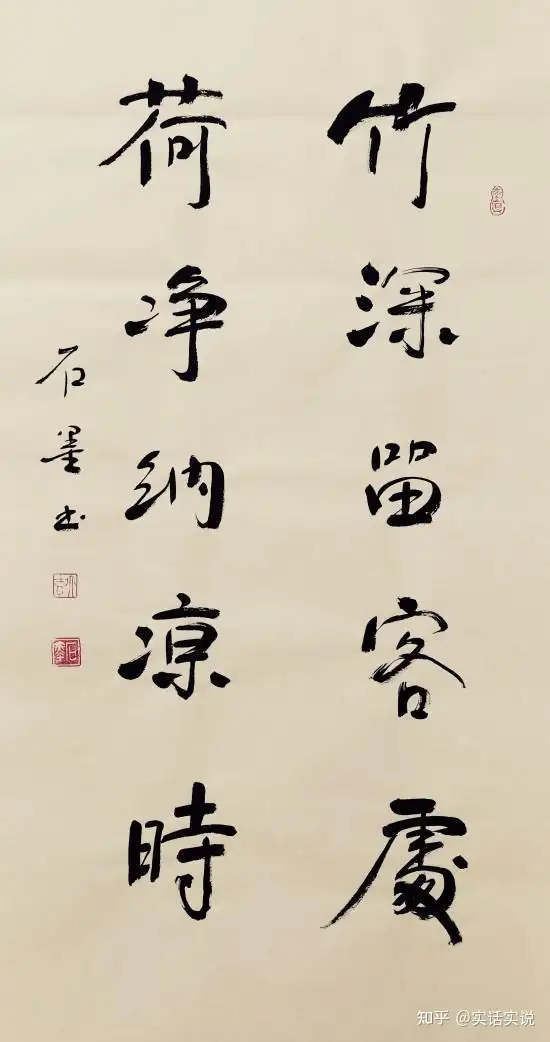 竹深留客處
荷净納凉時
石墨书
知乎 @实话实说